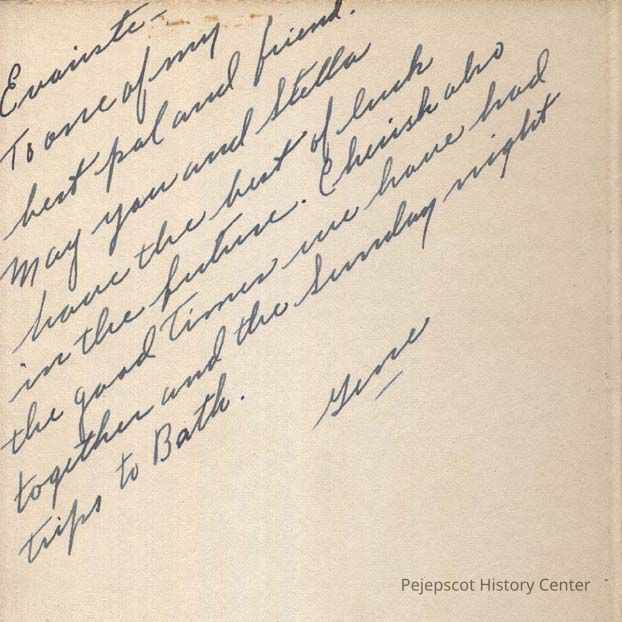 Evariste -
To one of my
best pal and friend.
May you and Stella
have the best of luck
in the future. Cherish also
the good times we have had
together and the Sunday night
trips to Bath.
Gene
Pejepscot History Center